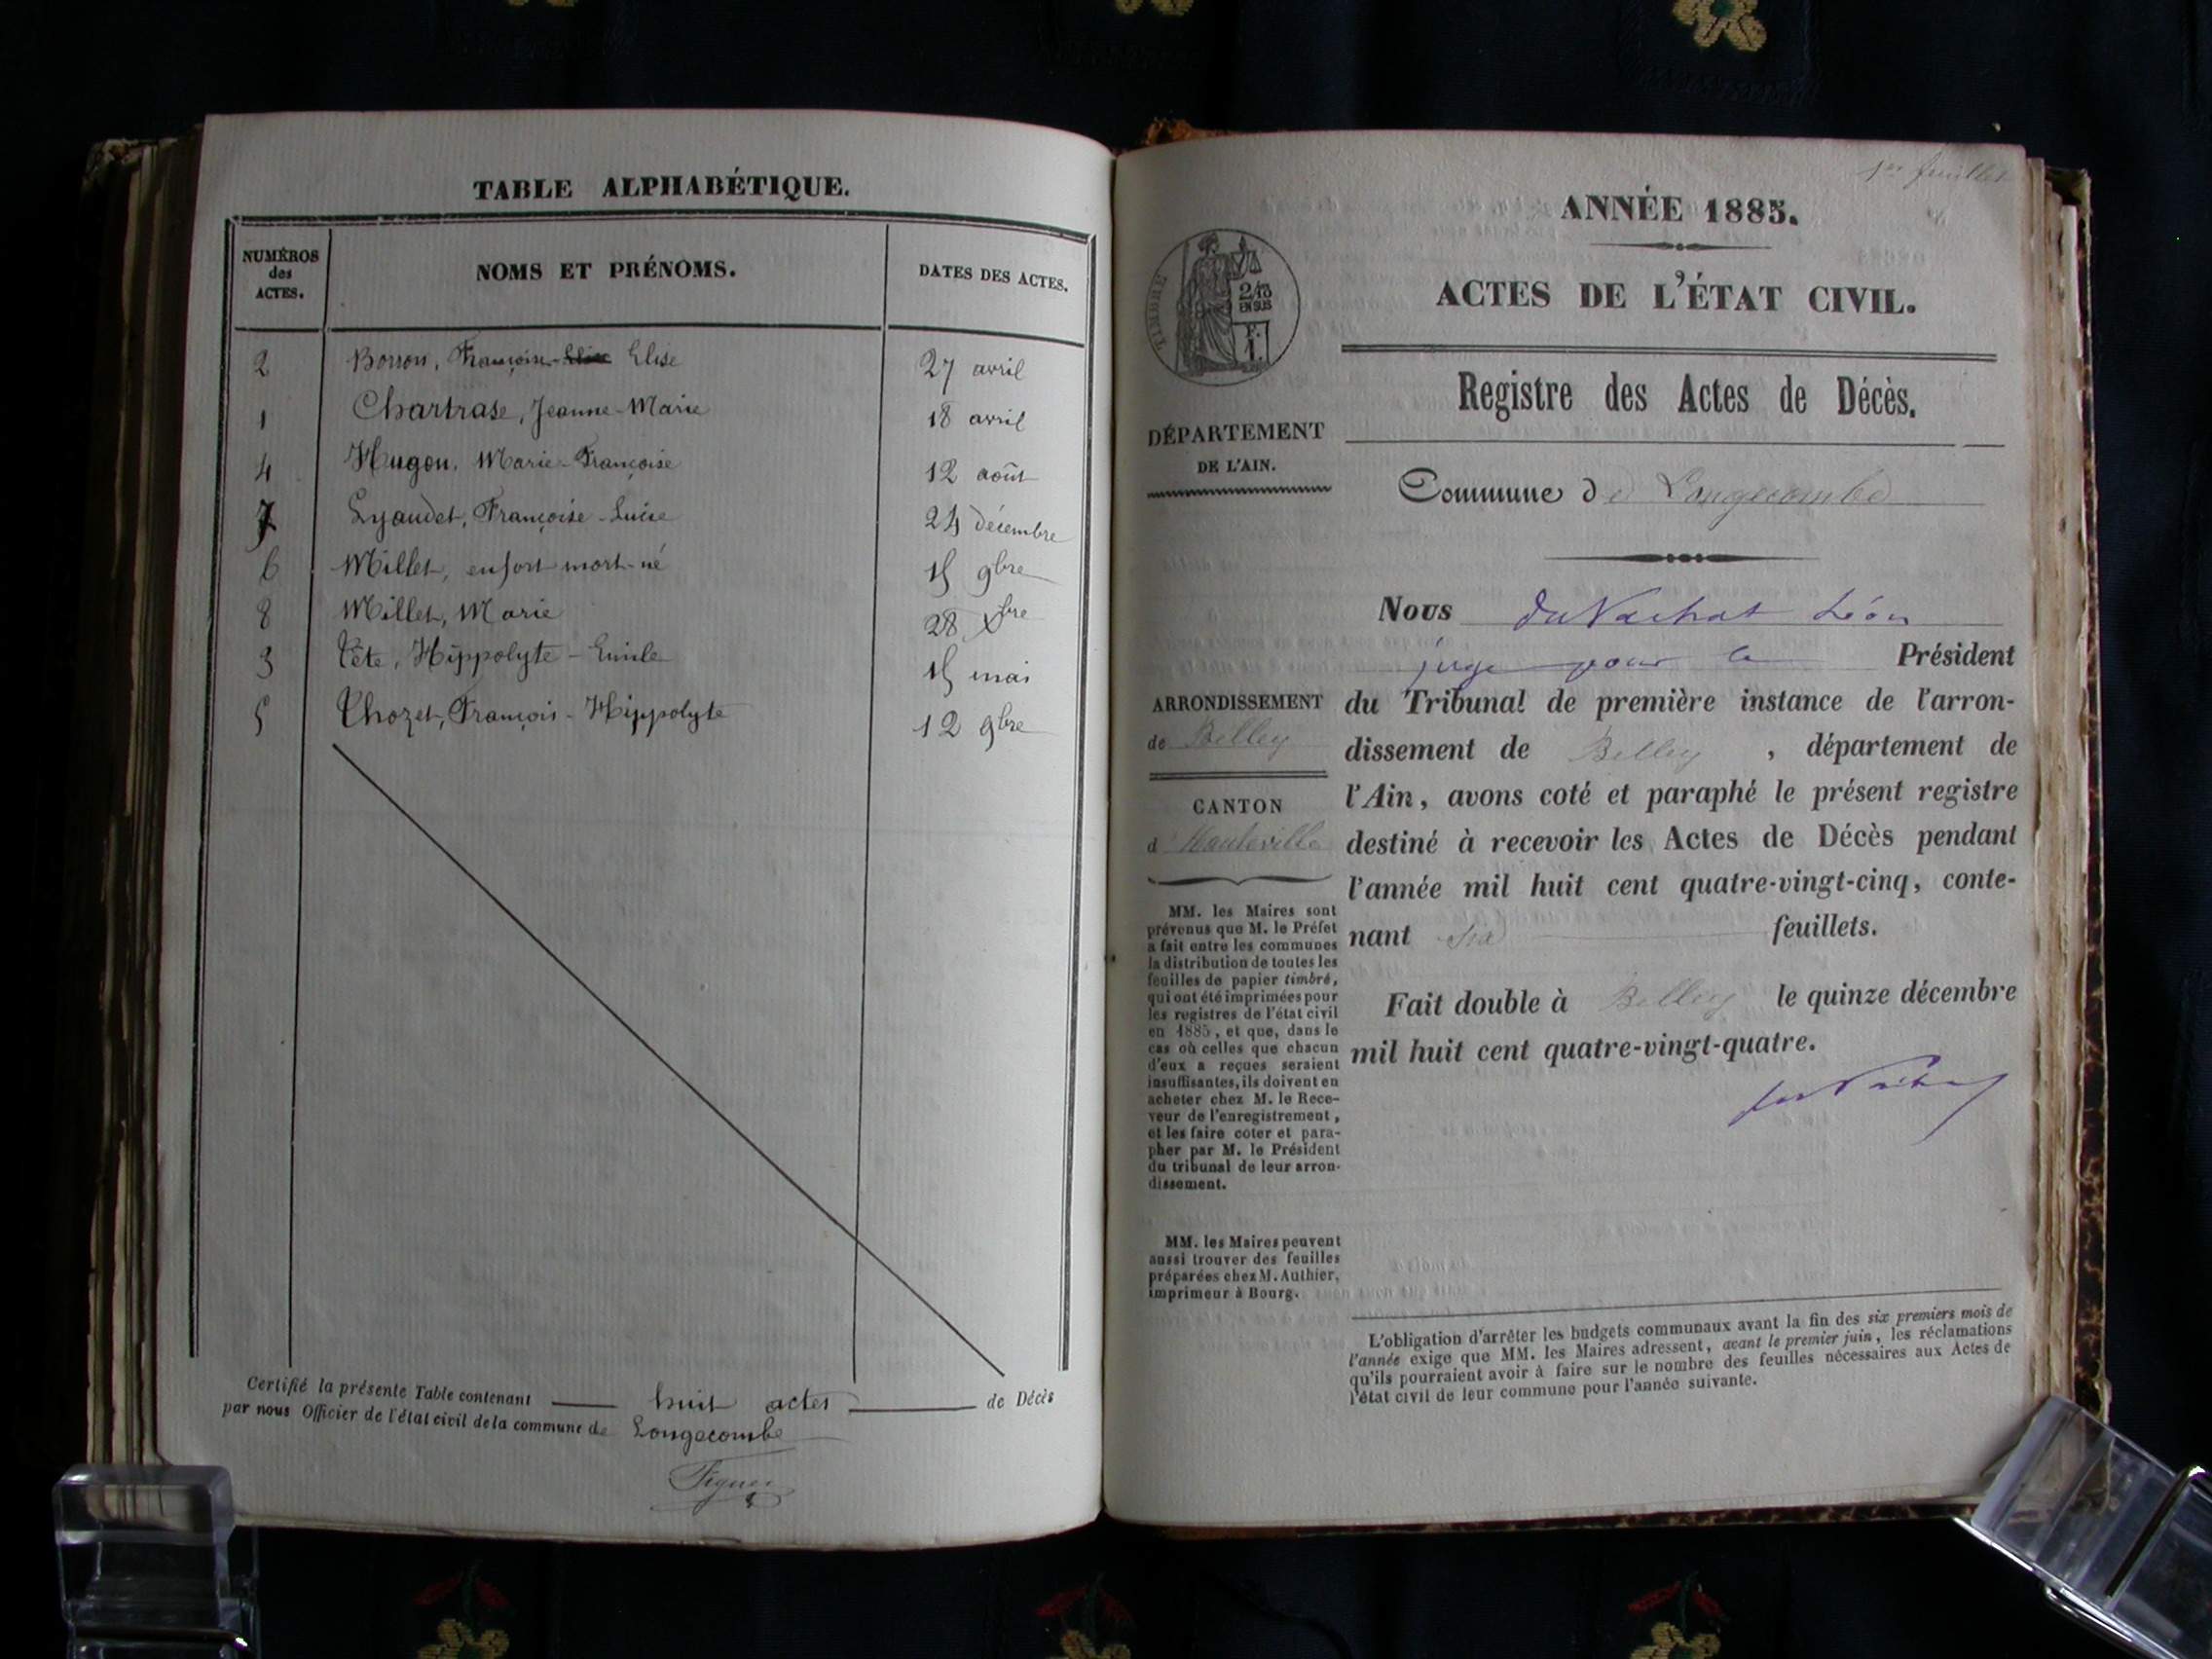 TABLE ALPHABÉTIQUE.
NUMÉROS des ACTES.
NOMS ET PRÉNOMS.
DATES DES ACTES.
2 Borron, Françoise- Elise 27 avril
1 Chartrase, Jeanne-Marie 18 avril
4 Hugon, Marie-Françoise 12 août
7 Lyaudet, Françoise-Lucie 24 décembre
6 Millet, enfort mort-né 15 9bre
8 Millet, Marie 28 Xbre
3 Tête, Hippolyte-Emile 15 mai
5 Thozet, François-Hippolyte 12 9bre
Certifié la présente Table contenant huit actes de Décès
par nous Officier de l'état civil de la commune de Longecombe
1er feuillet
ANNÉE 1885.
ACTES DE L'ÉTAT CIVIL.
TIMBRE
2/10
EN SUS
F.
1.
Registre des Actes de Décès.
DÉPARTEMENT
DE L'AIN.
Commune de Longecombe
Nous du Vachat Léon
juge pour le Président
ARRONDISSEMENT
de Belley
CANTON
d'Hauteville
du Tribunal de première instance de l'arron-
dissement de Belley, département de
l'Ain, avons coté et paraphé le présent registre
destiné à recevoir les Actes de Décès pendant
l'année mil huit cent quatre-vingt-cinq, conte-
nant six feuillets.
Fait double à Belley le quinze décembre
mil huit cent quatre-vingt-quatre.
MM. les Maires sont
prévenus que M. le Préfet
a fait entre les communes
la distribution de toutes les
feuilles de papier timbré,
qui ont été imprimées pour
les registres de l'état civil
en 1885, et que, dans le
cas où celles que chacun
d'eux a reçues seraient
insuffisantes, ils doivent en
acheter chez M. le Rece-
veur de l'enregistrement,
et les faire coter et para-
pher par M. le Président
du tribunal de leur arron-
dissement.
MM. les Maires peuvent
aussi trouver des feuilles
préparées chez M. Authier,
imprimeur à Bourg.
L'obligation d'arrêter les budgets communaux avant la fin des six premiers mois de
l'année exige que MM. les Maires adressent, avant le premier juin, les réclamations
qu'ils pourraient avoir à faire sur le nombre des feuilles nécessaires aux Actes de
l'état civil de leur commune pour l'année suivante.